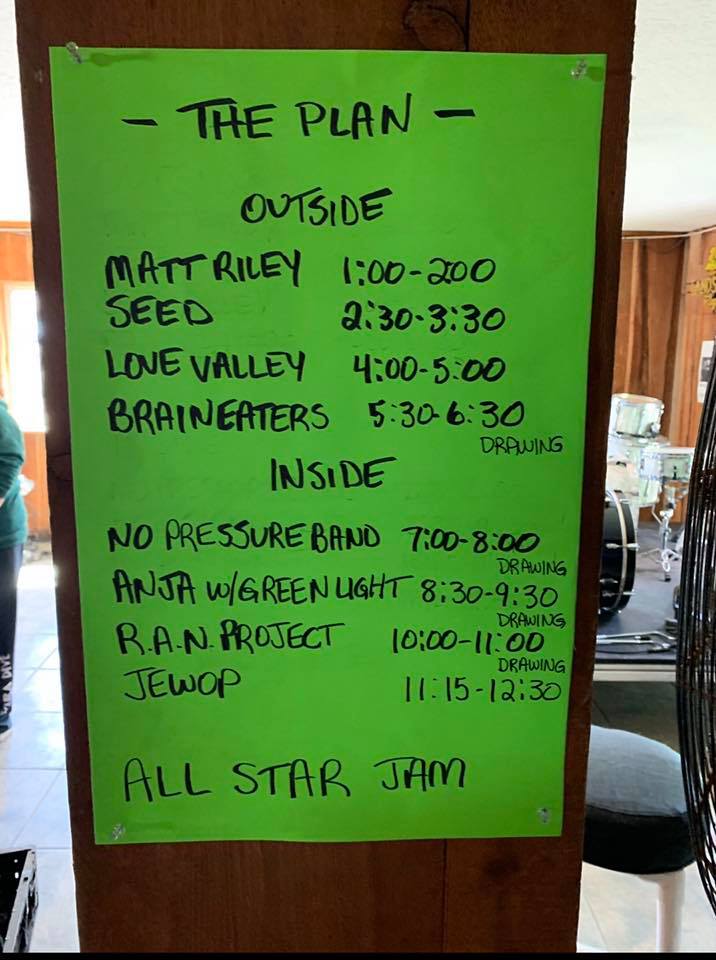 - THE PLAN -
OUTSIDE
MATT RILEY 1:00-200
SEED 2:30-3:30
LOVE VALLEY 4:00-5:00
BRAINEATERS 5:30-6:30
DRAWING
INSIDE
NO PRESSURE BAND 7:00-8:00
DRAWING
ANJA W/GREEN LIGHT 8:30-9:30
DRAWING
R.A.N. PROJECT 10:00-11:00
DRAWING
JEWOP 11:15-12:30
ALL STAR JAM